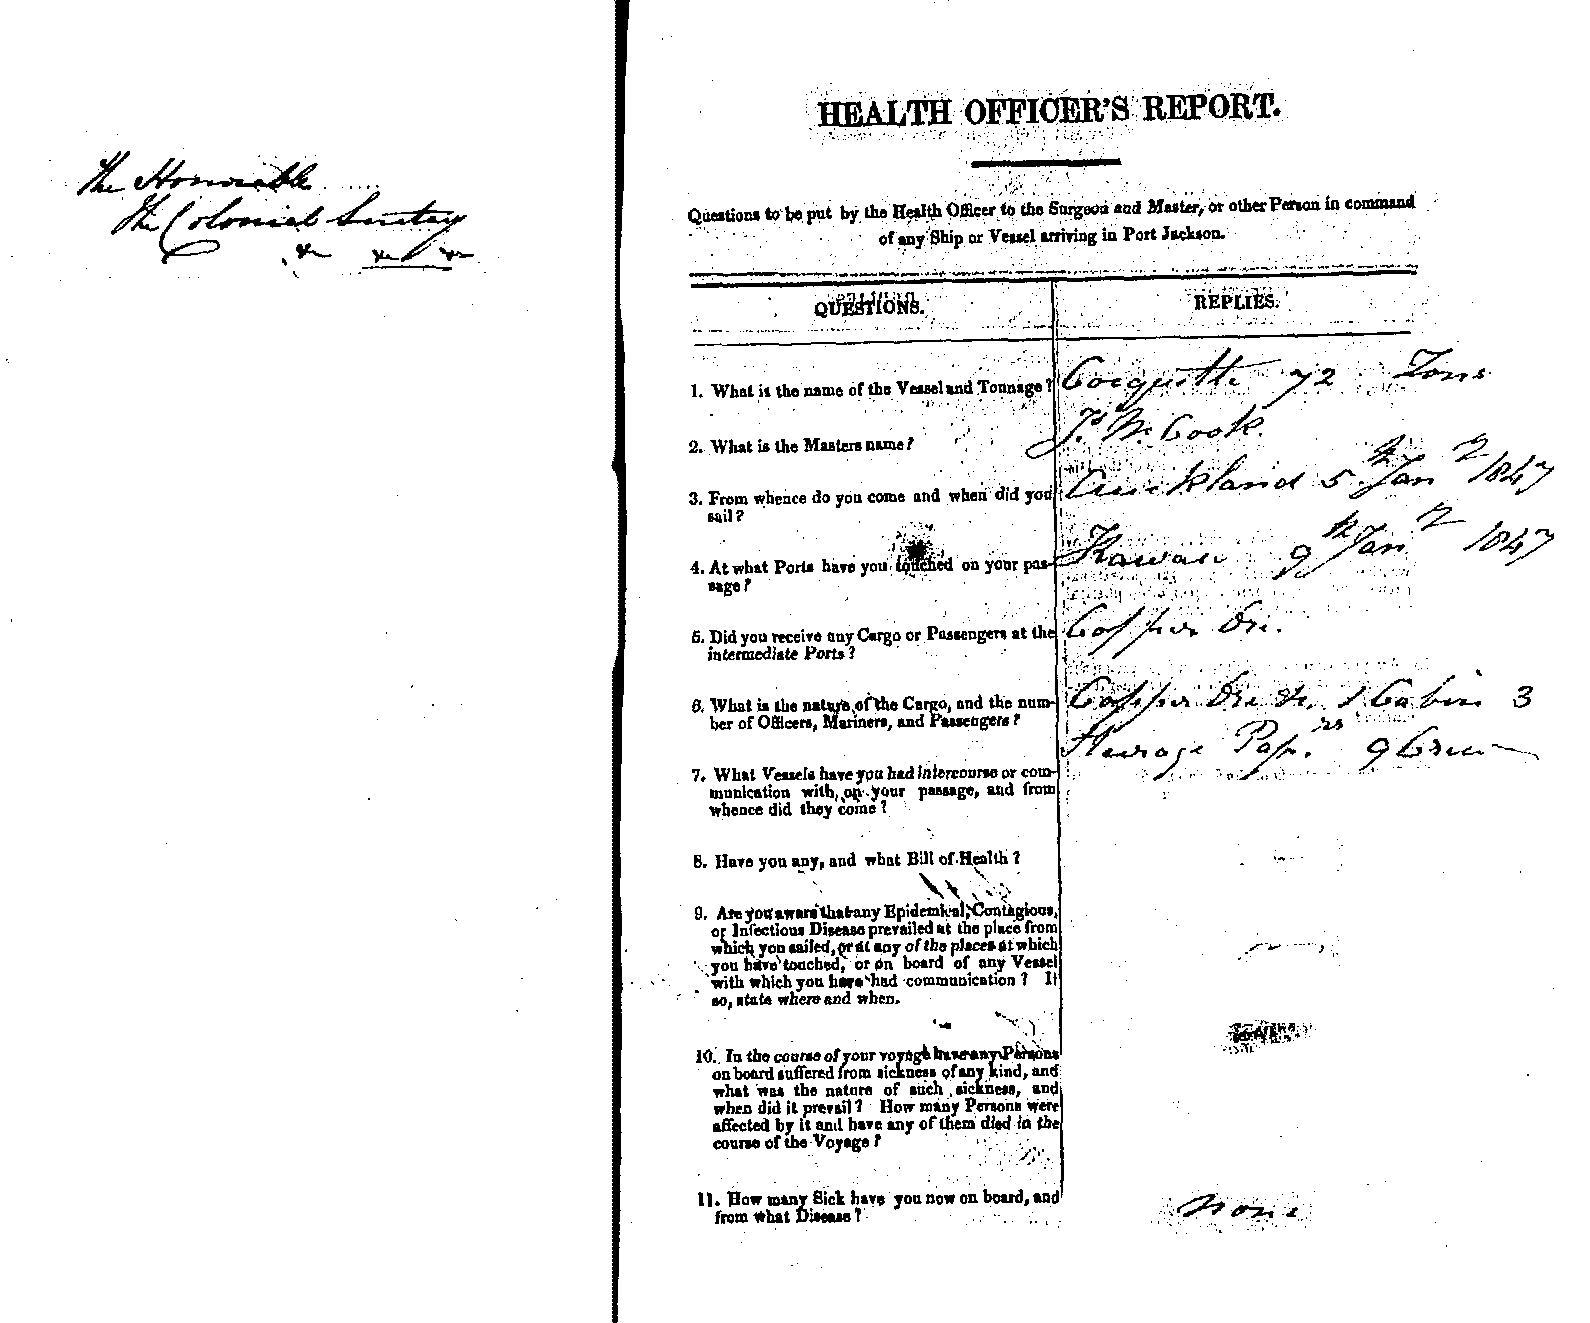 The Honorable
The Colonial Secretary
&c &c &c
HEALTH OFFICER'S REPORT.
Questions to be put by the Health Officer to the Surgeon and Master, or other Person in command
of any Ship or Vessel arriving in Port Jackson.
QUESTIONS.
REPLIES.
1. What is the name of the Vessel and Tonnage?
Cocquette 72 Tons
2. What is the Masters name?
Cook
3. From whence do you come and when did you
sail?
Auckland 5th Jany 1847
4. At what Ports have you touched on your pas-
sage?
Kawau 9th Jany 1847
5. Did you receive any Cargo or Passengers at the
intermediate Ports?
Copper Ore.
6. What is the nature of the Cargo, and the num-
ber of Officers, Mariners, and Passengers?
Copper Ore &c, 1 Cabin 3
Steerage Pass.rs 9 Crew
7. What Vessels have you had intercourse or com-
munication with, on your passage, and from
whence did they come?
8. Have you any, and what Bill of Health?
9. Are you aware that any Epidemical, Contagious,
or Infectious Disease prevailed at the place from
which you sailed, or at any of the places at which
you have touched, or on board of any Vessel
with which you have had communication? If
so, state where and when.
10. In the course of your voyage have any Persons
on board suffered from sickness of any kind, and
what was the nature of such sickness, and
when did it prevail? How many Persons were
affected by it and have any of them died in the
course of the Voyage?
11. How many Sick have you now on board, and
from what Disease?
None